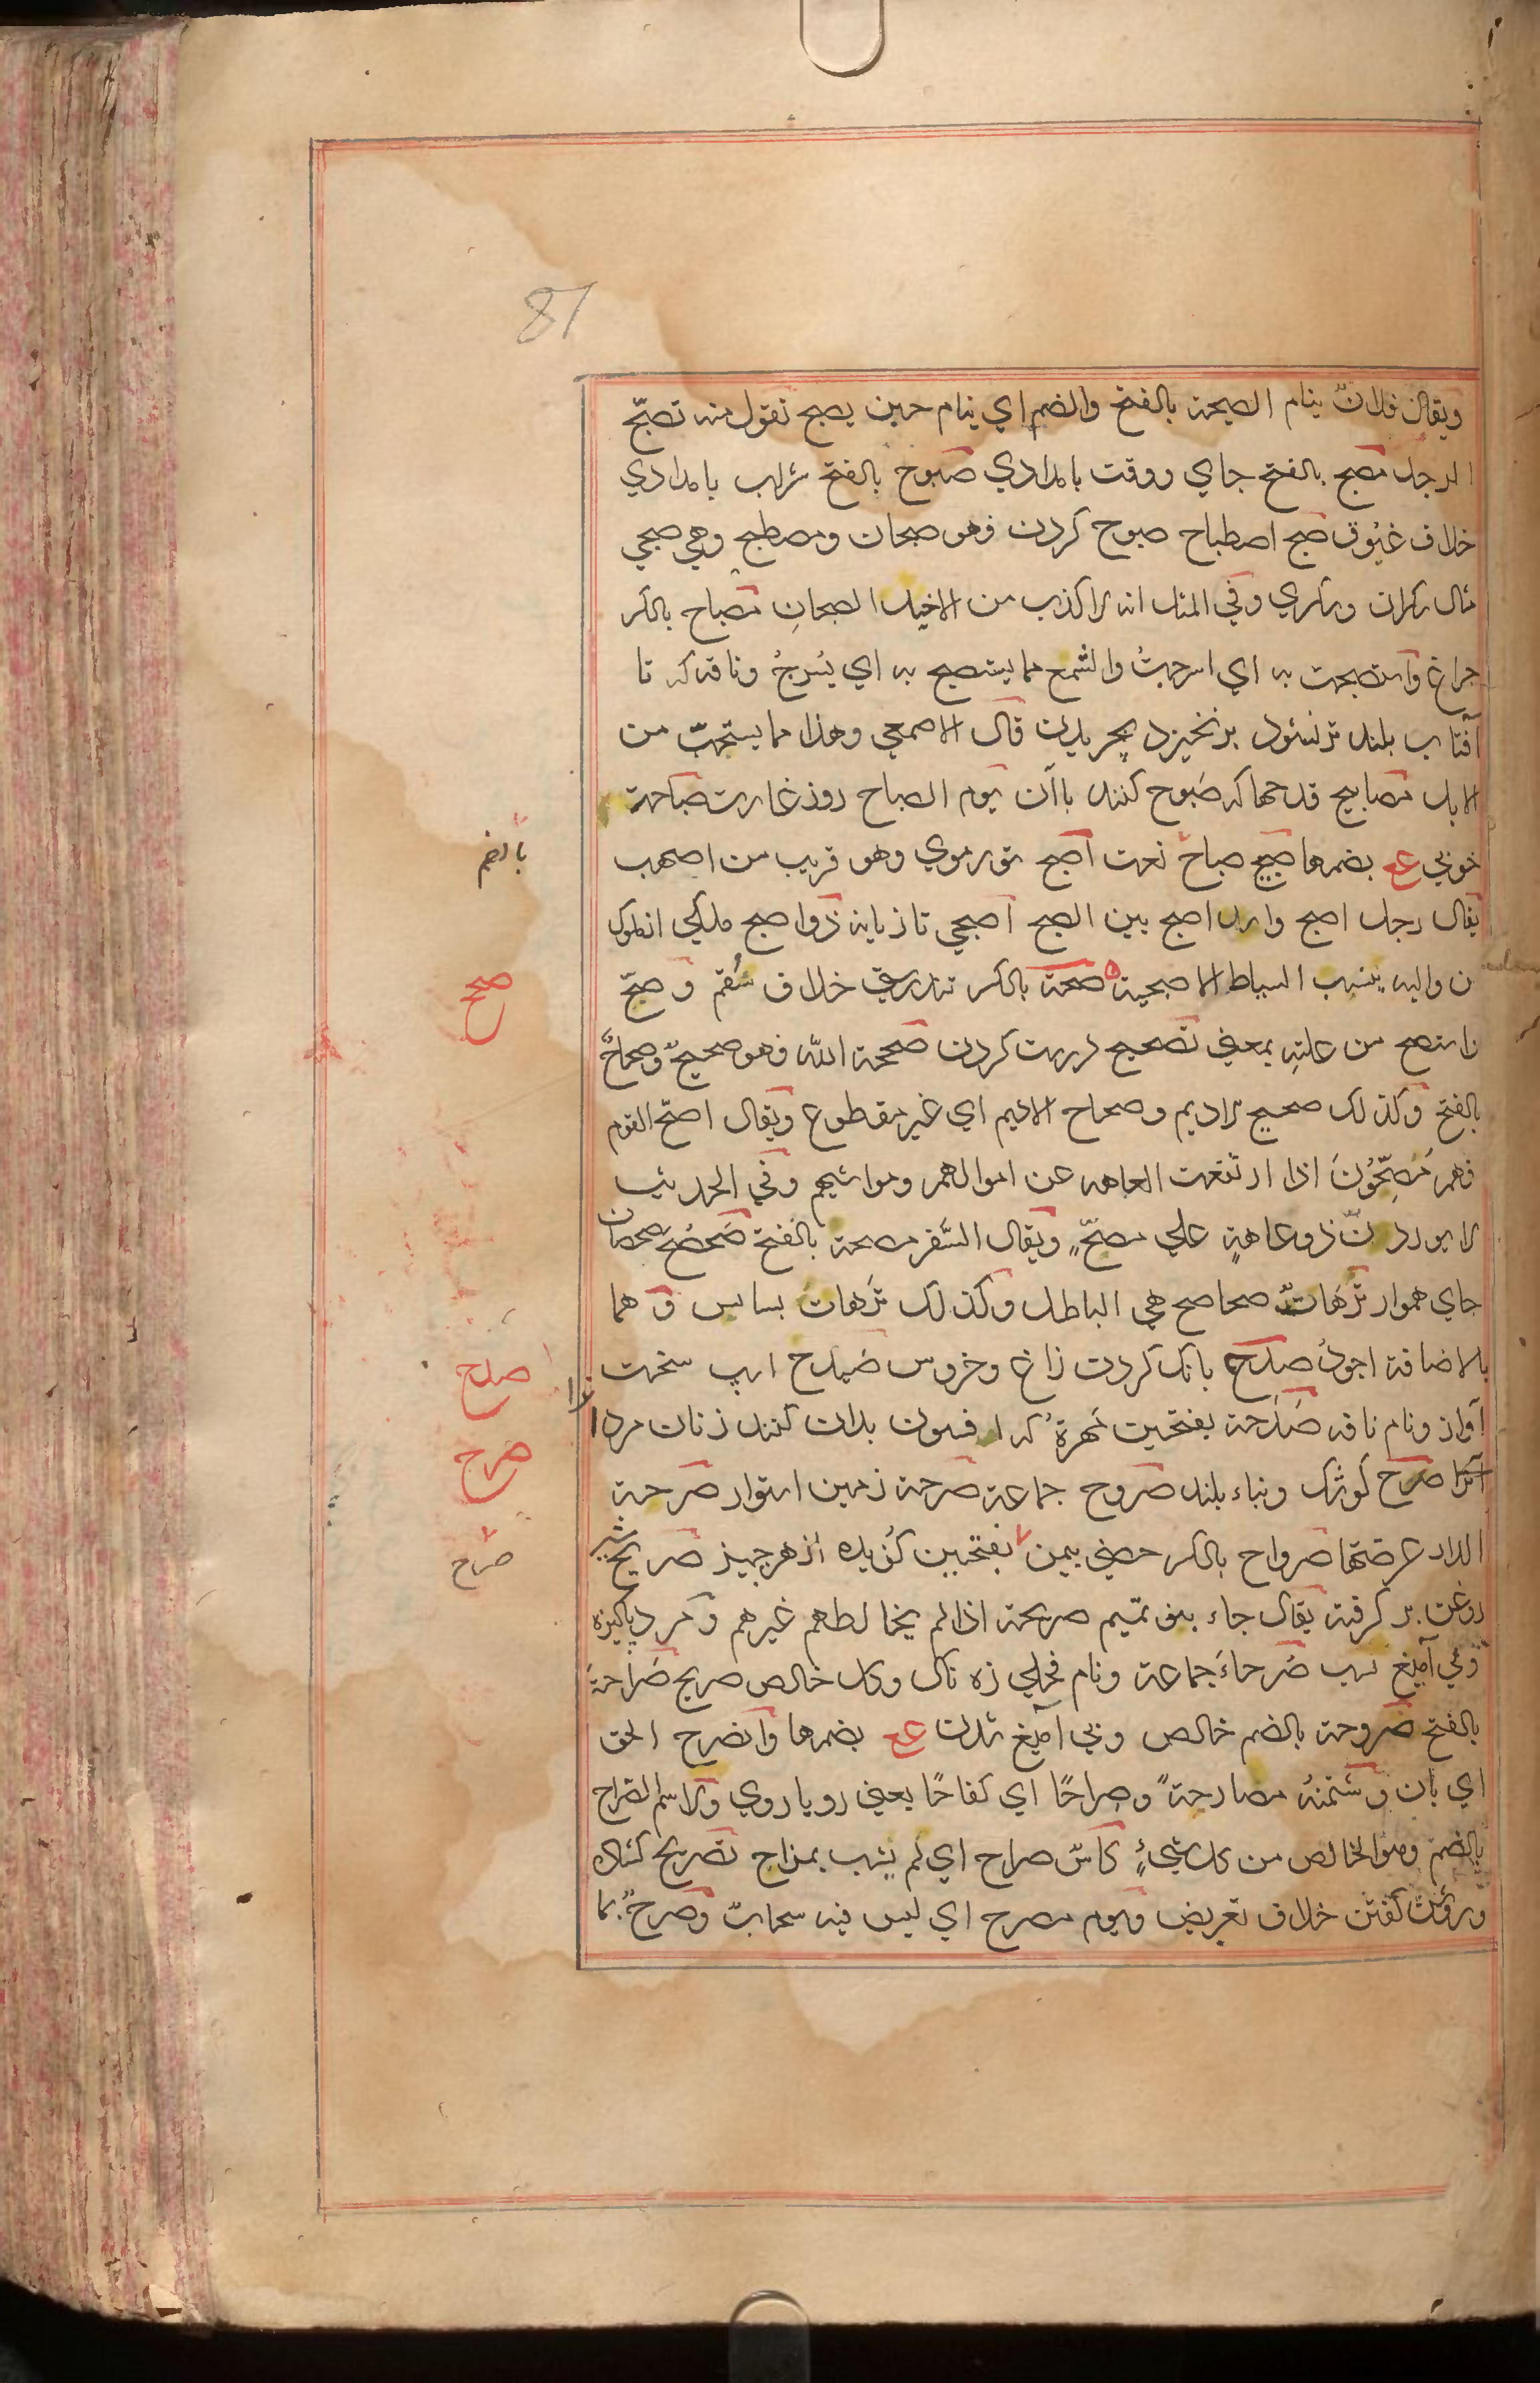 87
ويقال فلانٌ ينام الصبحة بالفتح والضم اي ينام حين يصبح تقول منه تصبّح
الرجل مصبح بالفتح جاي ووقت بامدادي صبوح بالفتح شراب بامدادي
خلاف غبُوق صبح اصطباح صبوح كردن فهو صبحان ومصطبح وهي صبحي
مثال سكران وسكري وفي المثل انه لاكذب من الاخيذ الصبحانِ مصباح بالكسر
جراغ واستصبحت به اي اسرجتُ والشمع مما يستصبح به اي يُسرجُ وناقه كه تا
آفتاب بلند نشود برنخيزد بچريدن قال الاصمعي وهذا مما يستحبّ من
الابل مصابيح قدحها كه صَبوح كنند باآن يوم الصباح روز غارت صباحة
خوبي ع بضمها صبيح صباح نعت اصبح شور موي وهو قريب من اصهب
يقال رجل اصبح واسد اصبح بين الصبح اصبحي تازيانه ذواصبح ملكي از ملوك
ن واليه ينسب السياط الاصبحية صحة بالكسر تندرستي خلاف سُقم وصحّ
واستصح من علتهِ بمعني تصحيح درست كردن صححه اللّه فهو صحيحٌ وصحاحٌ
بالفتح وكذلك صحيح الاديم وصحاح الاديم اي غير مقطوع ويقال اصحّ القوم
فهم مُصِحُّونَ اذا ارتفعت العاهه عن اموالهم ومواشيهم وفي الحديث
لا يوردنّ ذوعاهةٍ علي مصحٍّ ويقال السَّفر مصحة بالفتح صَحصَح صحصان
جاي هموار ترّهات صحاصح هي الباطل وكذلك ترّهات بسابس وهما
بالاضافة اجودُ صلدح بانك كردن زاغ وخروس صَيدح اسپ سخت
آواز ونام ناقه صَدَحة بفتحتين مُهرة كه افسون بدان كنند زنان مردا
را
آنرا صرح كوشك وبناء بلند صروح جماعة صرحة زمين استوار صرحة
الدار عرصتها صرواح بالكسر حصني بيمن بفتحتين كُزيده از هر جيز صريح شير
روغن بر كرفته يقال جاء بنو تميم صريحة اذا لم يخالطهم غيرهم ومرد پاكيزه
وبي آميغ نسب صُرحاءَ جماعة ونام فحلي زه ناك وكل خالص صريح صَراحة
بالفتح صُروحة بالضم خالص وبي آميغ شدن ع بضمها وانصرح الحق
اي بان وشتمته مصارحةً وصراحًا اي كفاحًا يعني رويا روي والاسم الصراح
بالضم وهو الخالص من كل شيءٍ كاسٌ صراح اي لم يشب بمزاج تصريح كشاده
وروشن كفتن خلاف تعريض ويوم مصرح اي ليس فيه سحابٌ وصرحٌ بما
بالضم
صحح
صدح
صرح
صراح